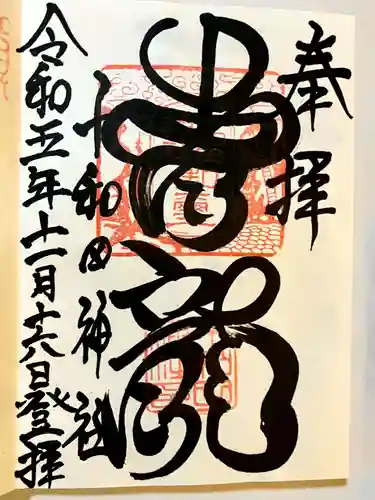 奉拝
青龍
十和田神社
令和五年十一月十六日登拝